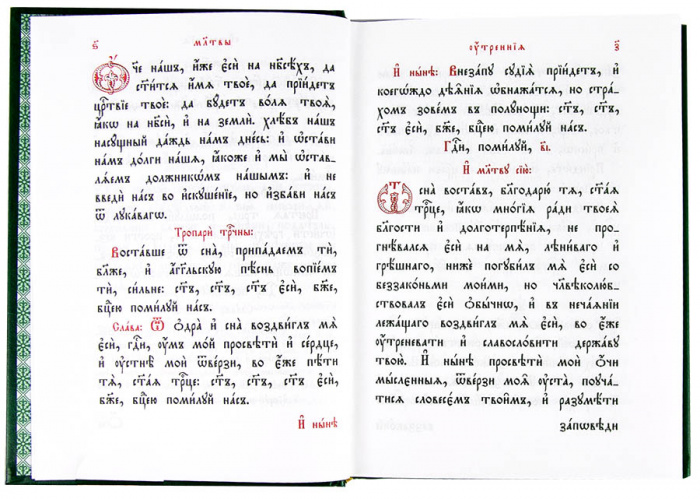 ѕ҃
Мл҃твы
Ѻ҆́ч҃е на́шъ, и҆́же є҆сѝ на нб҃сѣ́хъ, да
ст҃и́тсѧ и҆́мѧ твоѐ, да прїи́детъ
црⷭ҇твїе твоѐ: да бꙋ́детъ во́лѧ твоѧ̀,
ꙗ҆́кѡ на нб҃сѝ, и҆ на землѝ. хлѣ́бъ на́шъ
насꙋ́щный да́ждь на́мъ дне́сь: и҆ ѡ҆ста́ви
на́мъ до́лги на́шѧ, ꙗ҆́коже и҆ мы̀ ѡ҆ставлѧ-
ѧ́емъ должникѡ́мъ на́шымъ: и҆ не
введѝ на́съ во и҆скꙋше́нїе, но и҆зба́ви на́съ
ѿ лꙋка́вагѡ.
Тропарѝ трⷪ҇чны:
Воста́вше ѿ сна̀, припа́даемъ тѝ,
бл҃же, и҆ а҆́гг҃льскꙋю пѣ́снь вопїе́мъ
тѝ, си́льне: ст҃ъ, ст҃ъ, ст҃ъ є҆сѝ, бж҃е,
бцⷣею поми́лꙋй на́съ.
Сла́ва: Ѿ ѻ҆дра̀ и҆ сна̀ воздви́глъ мѧ̀
є҆сѝ, гдⷭ҇и, ᲂу҆́мъ мо́й просвѣтѝ и҆ се́рдце,
и҆ ᲂу҆стнѣ̀ моѝ ѿве́рзи, во є҆́же пѣ́ти
тѧ̀, ст҃а́ѧ трⷪ҇це: ст҃ъ, ст҃ъ, ст҃ъ є҆сѝ,
бж҃е, бцⷣею поми́лꙋй на́съ.
И҆ ны́нѣ
ᲂу҆́трєннїѧ
з҃
И҆ ны́нѣ: Внеза́пꙋ сꙋдїѧ̀ прїи́детъ, и҆
коегѡ́ждо дѣѧ̑нїѧ ѡ҆бнажа́тсѧ, но стра́-
хомъ зове́мъ в полꙋ́нощи: ст҃ъ, ст҃ъ,
ст҃ъ є҆сѝ, бж҃е, бцⷣею поми́лꙋй на́съ.
Гдⷭ҇и, поми́лꙋй, в҃і.
И҆ мл҃твꙋ сїю̀:
Ѿ сна̀ воста́въ, благодарю̀ тѧ̀, ст҃а́ѧ
трⷪ҇це, ꙗ҆́кѡ мно́гїѧ ра́ди твоеѧ̀
бл҃гости и҆ долготерпѣ́нїѧ, не про-
гнѣ́валсѧ є҆сѝ на мѧ̀, лѣни́ваго и҆
грѣ́шнаго, нижѐ погꙋби́лъ мѧ̀ є҆сѝ со
беззако́ньми мои́ми: но чл҃вѣколю́б-
ствовалъ є҆сѝ ѻ҆бы́чнѡ, и҆ в неча́ѧнїи
лежа́щаго воздви́глъ мѧ̀ є҆сѝ, во є҆́же
ᲂу҆́треневати и҆ славосло́вити держа́вꙋ
твою̀. И҆ ны́нѣ просвѣтѝ моѝ ѻ҆́чи
мы́слєнныѧ, ѿве́рзи моѧ̑ ᲂу҆ста̀, поꙋча́-
тисѧ словесє́мъ твои̑мъ, и҆ разꙋмѣ́ти
за́пѡвѣди